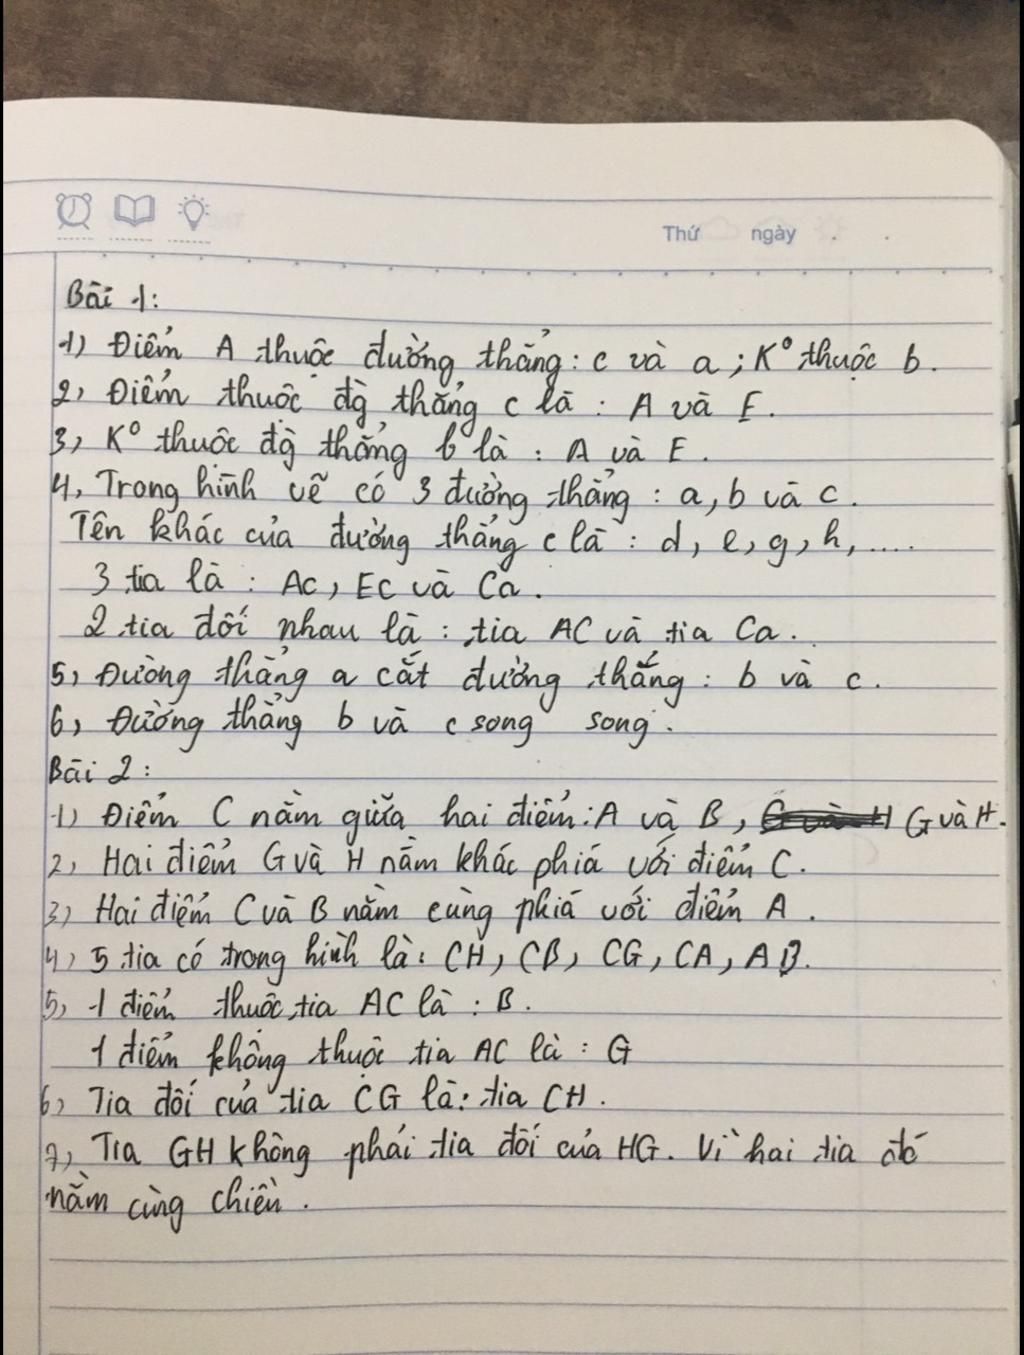 Thứ ngày . .
Bài 1:
1) Điểm A thuộc đường thẳng: c và a; K° thuộc b.
2, Điểm thuộc đg̀ thẳng c là : A và E.
3, K° thuộc đg̀ thẳng b là : A và E.
4, Trong hình vẽ có 3 đường thẳng : a, b và c.
Tên khác của đường thẳng c là : d, e, g, h, ....
3 tia là : Ac, Ec và Ca.
2 tia đối nhau là : tia AC và tia Ca.
5, Đường thẳng a cắt đường thẳng : b và c.
6, Đường thẳng b và c song song.
Bài 2 :
1) Điểm C nằm giữa hai điểm: A và B, G và H.
2, Hai điểm G và H nằm khác phiá với điểm C.
3) Hai điểm C và B nằm cùng phiá với điểm A.
4, 5 tia có trong hình là: CH, CB, CG, CA, AB.
5, 1 điểm thuộc tia AC là : B.
1 điểm không thuộc tia AC là : G
6, Tia đối của tia CG là: tia CH.
7, Tia GH không phải tia đối của HG. Vì hai tia đó
nằm cùng chiều.